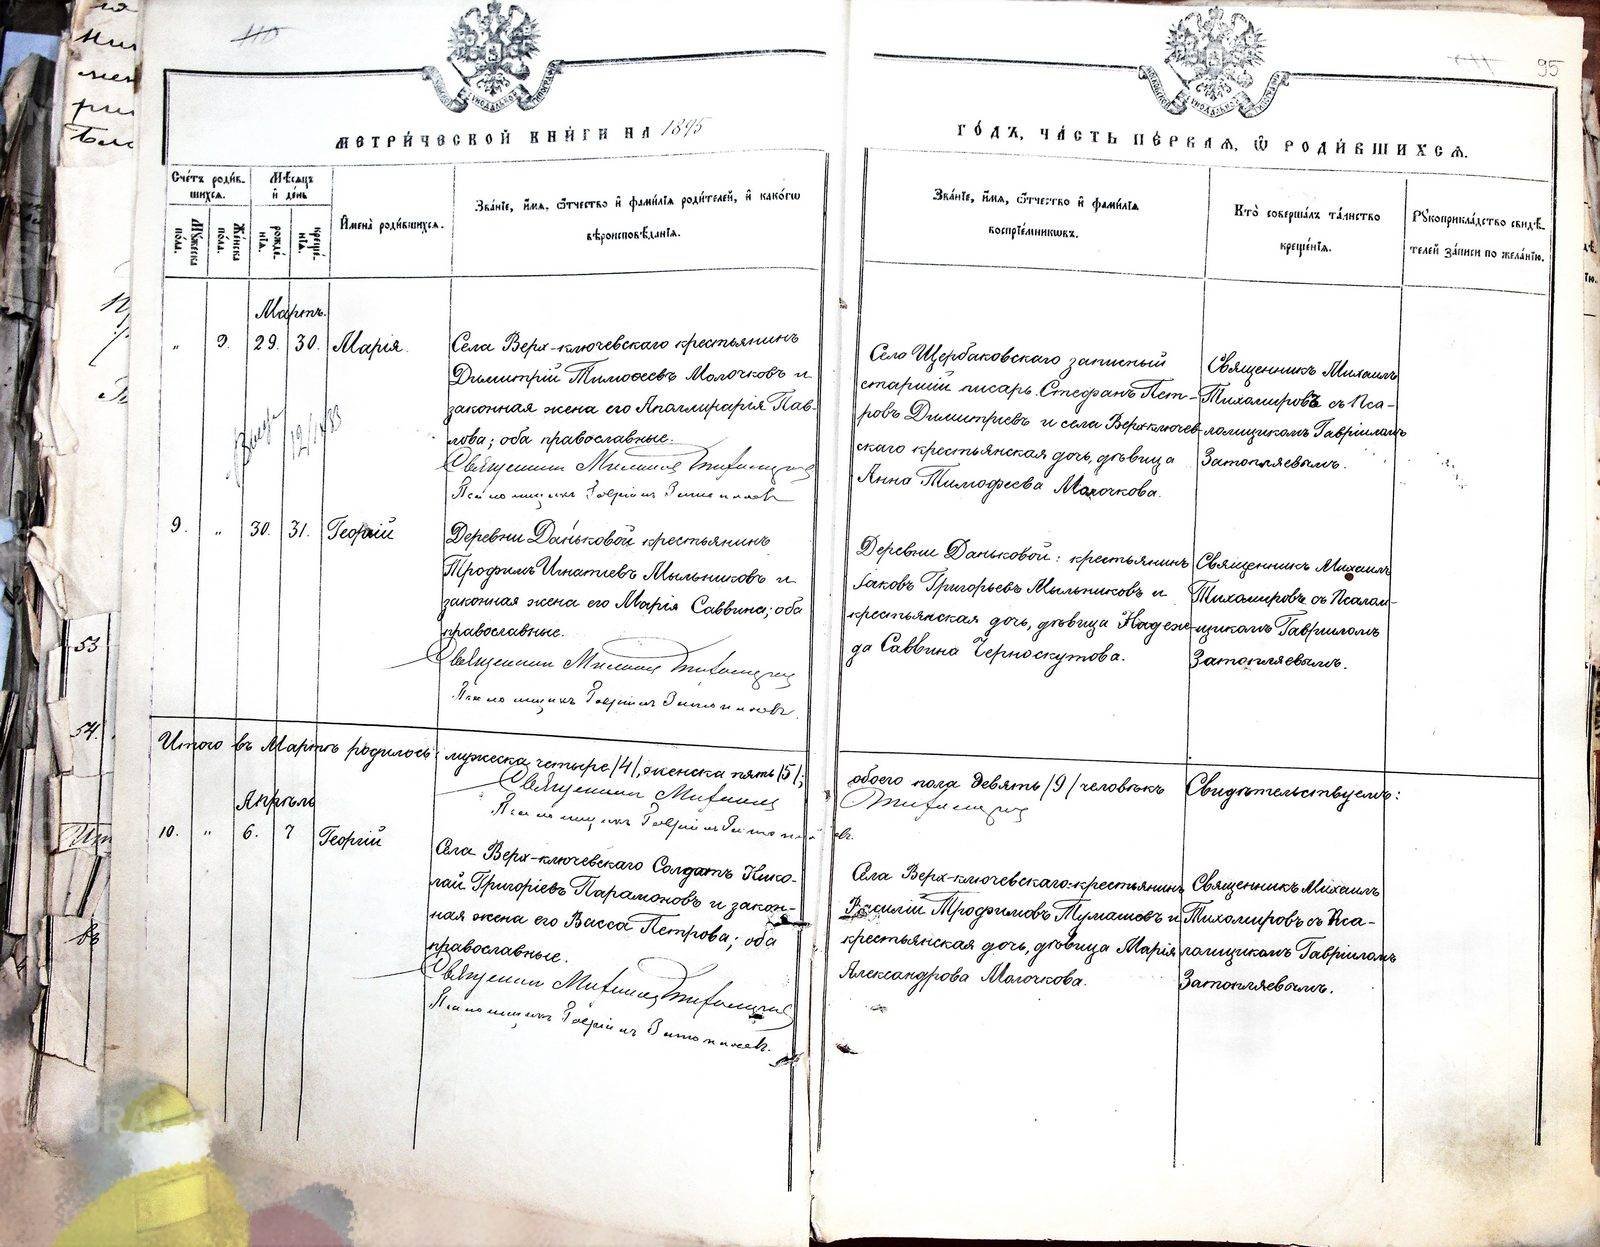 110
95
МЕТРИ́ЧЕСКОЙ КНИ́ГИ НА 1895
ГО́ДЪ, ЧА́СТЬ ПЕ́РВАЯ, Ѽ РОДИ́ВШИХСЯ.
Сче́тъ роди́в-
шихся.
Мѣ́сяцъ
и҆ де́нь
И҆мена̀ роди́вшихся.
Зва́нїе, и҆́мя, ѻ҆́тчество и҆ фами́лїя роди́телей, и҆ како́гѡ
вѣроисповѣ́данїя.
Мꙋ́жеска
по́ла.
Же́нска
по́ла.
рожде́-
нїя.
креще́-
нїя.
Зва́нїе, и҆́мя, ѻ҆́тчество и҆ фами́лїя
воспрїе́мникѡвъ.
Кто̀ соверша́лъ та́инство
креще́нїя.
Рꙋкоприкла́дство свидѣ́-
телей за́писи по жела́нїю.
Мартъ.
„ 9. 29. 30. Марія.
Села Верх-ключевскаго крестьянинъ
Димитрій Тимоѳеевъ Молочковъ и
законная жена его Аполлинарія Пав-
лова; оба православные.
Священникъ Михаилъ Тихомировъ
Псаломщикъ Гавріилъ Затопляевъ
Село Щербаковскаго запасный
старшій писарь Стефанъ Пет-
ровъ Димитріевъ и села Верх-ключев-
скаго крестьянская дочь, дѣвица
Анна Тимофеева Молочкова.
Священникъ Михаилъ
Тихомировъ съ Пса-
ломщикомъ Гавріиломъ
Затопляевымъ.
9. „ 30. 31. Георгій
Деревни Даньковой крестьянинъ
Трофимъ Игнатіевъ Мыльниковъ и
законная жена его Марія Саввина; оба
православные.
Священникъ Михаилъ Тихомировъ
Псаломщикъ Гавріилъ Затопляевъ.
Деревни Даньковой: крестьянинъ
Іаковъ Григорьевъ Мыльниковъ и
крестьянская дочь, дѣвица Надеж-
да Саввина Черноскутова.
Священникъ Михаилъ
Тихомировъ съ Псалом-
щикомъ Гавріиломъ
Затопляевымъ.
Итого въ Мартѣ родилось: мужеска четыре /4/, женска пять /5/; обоего пола девять /9/ человѣкъ Свидѣтельствуемъ:
Священникъ Михаилъ Тихомировъ
Псаломщикъ Гавріилъ Затопляевъ.
Апрѣль
10. „ 6. 7 Георгій
Села Верх-ключевскаго Солдатъ Нико-
лай Григоріевъ Парамоновъ и закон-
ная жена его Васса Петрова; оба
православные.
Священникъ Михаилъ Тихомировъ
Псаломщикъ Гавріилъ Затопляевъ.
Села Верх-ключевскаго: крестьянинъ
Василій Трофимовъ Тумашевъ и
крестьянская дочь, дѣвица Марія
Александрова Молочкова.
Священникъ Михаилъ
Тихомировъ съ Пса-
ломщикомъ Гавріиломъ
Затопляевымъ.
53
54.